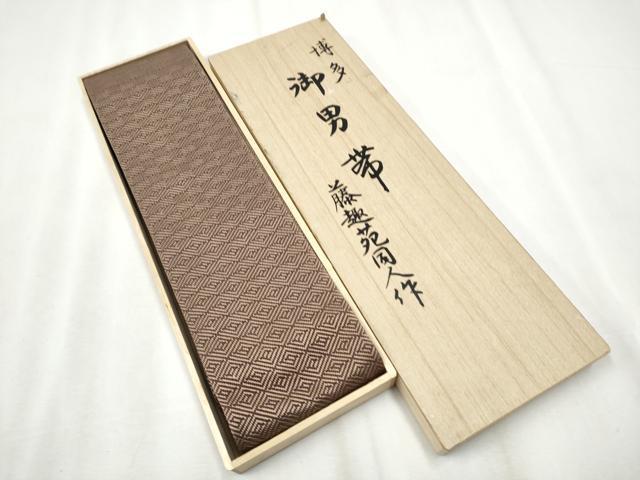 博多
御男帯
藤趣苑同人作